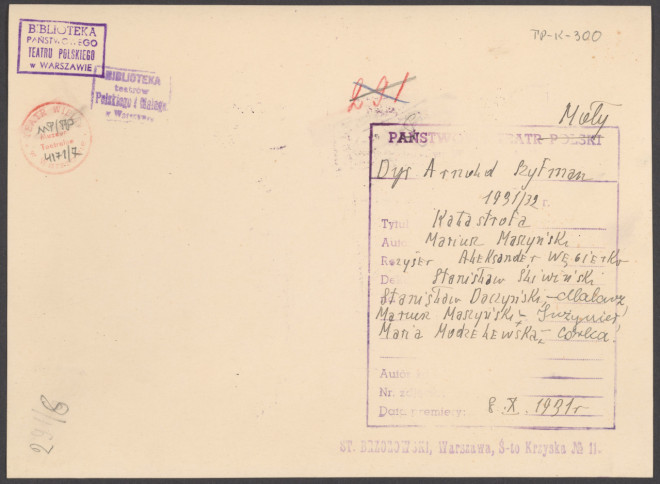 BIBLIOTEKA
PAŃSTWOWEGO
TEATRU POLSKIEGO
w WARSZAWIE
TP-K-300
BIBLIOTEKA
teatrów
Polskiego i Małego
w Warszawie
291
TEATR WIELKI
Muzeum
Teatralne
4171/7
Mały
PAŃSTWOWY TEATR POLSKI
Dyr Arnold Szyfman
1931/32 r.
Tytuł Katastrofa
Autor Mariusz Maszyński
Reżyser Aleksander Węgierko
De Stanisław Śliwiński
Stanisław Daczyński - Malarz
Mariusz Maszyński - Inżynier
Maria Modzelewska - Córka
Autor
Nr.
Data premiery: 8.X.1931r
ST. BRZOZOWSKI, Warszawa, Ś-to Krzyska № 11.